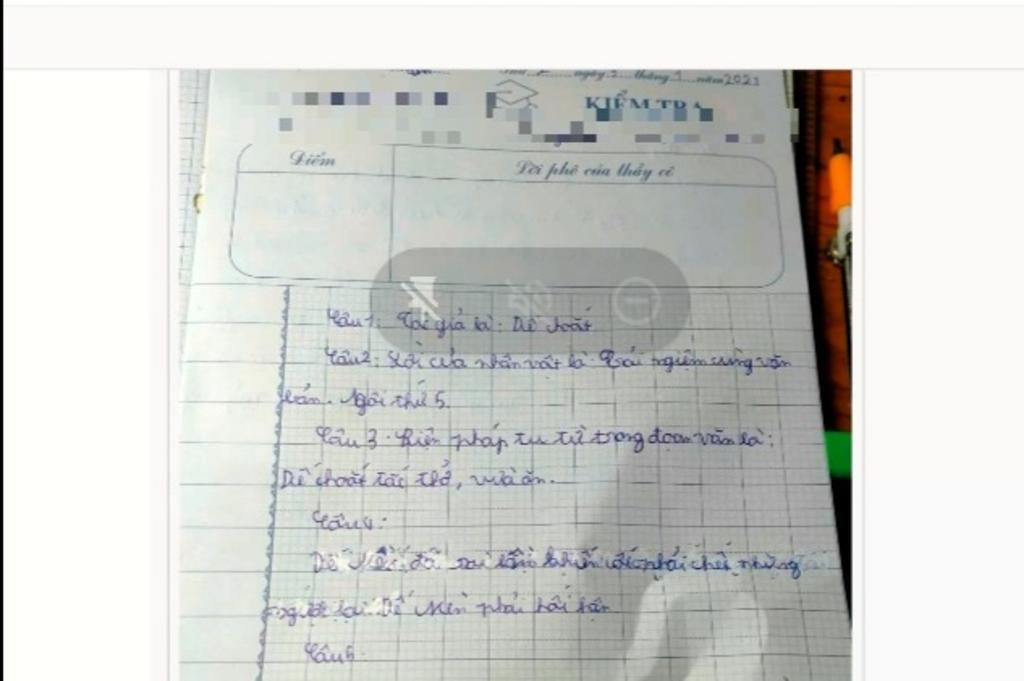 ngày 5 tháng 1 năm 2021
KIỂM TRA
Điểm
Lời phê của thầy cô
Câu 1: Tác giả là: Dế choắt
Câu 2: Lời của nhân vật là: Trải nghiệm cùng văn
bản. Ngôi thứ 5.
Câu 3. Biện pháp tu từ trong đoạn văn là:
Dế choắt tắc thở, vừa ăn.
Câu 4:
Dế Mèn đã phải chết những
người lại. Dế Mèn phải hối hận
Câu 5.